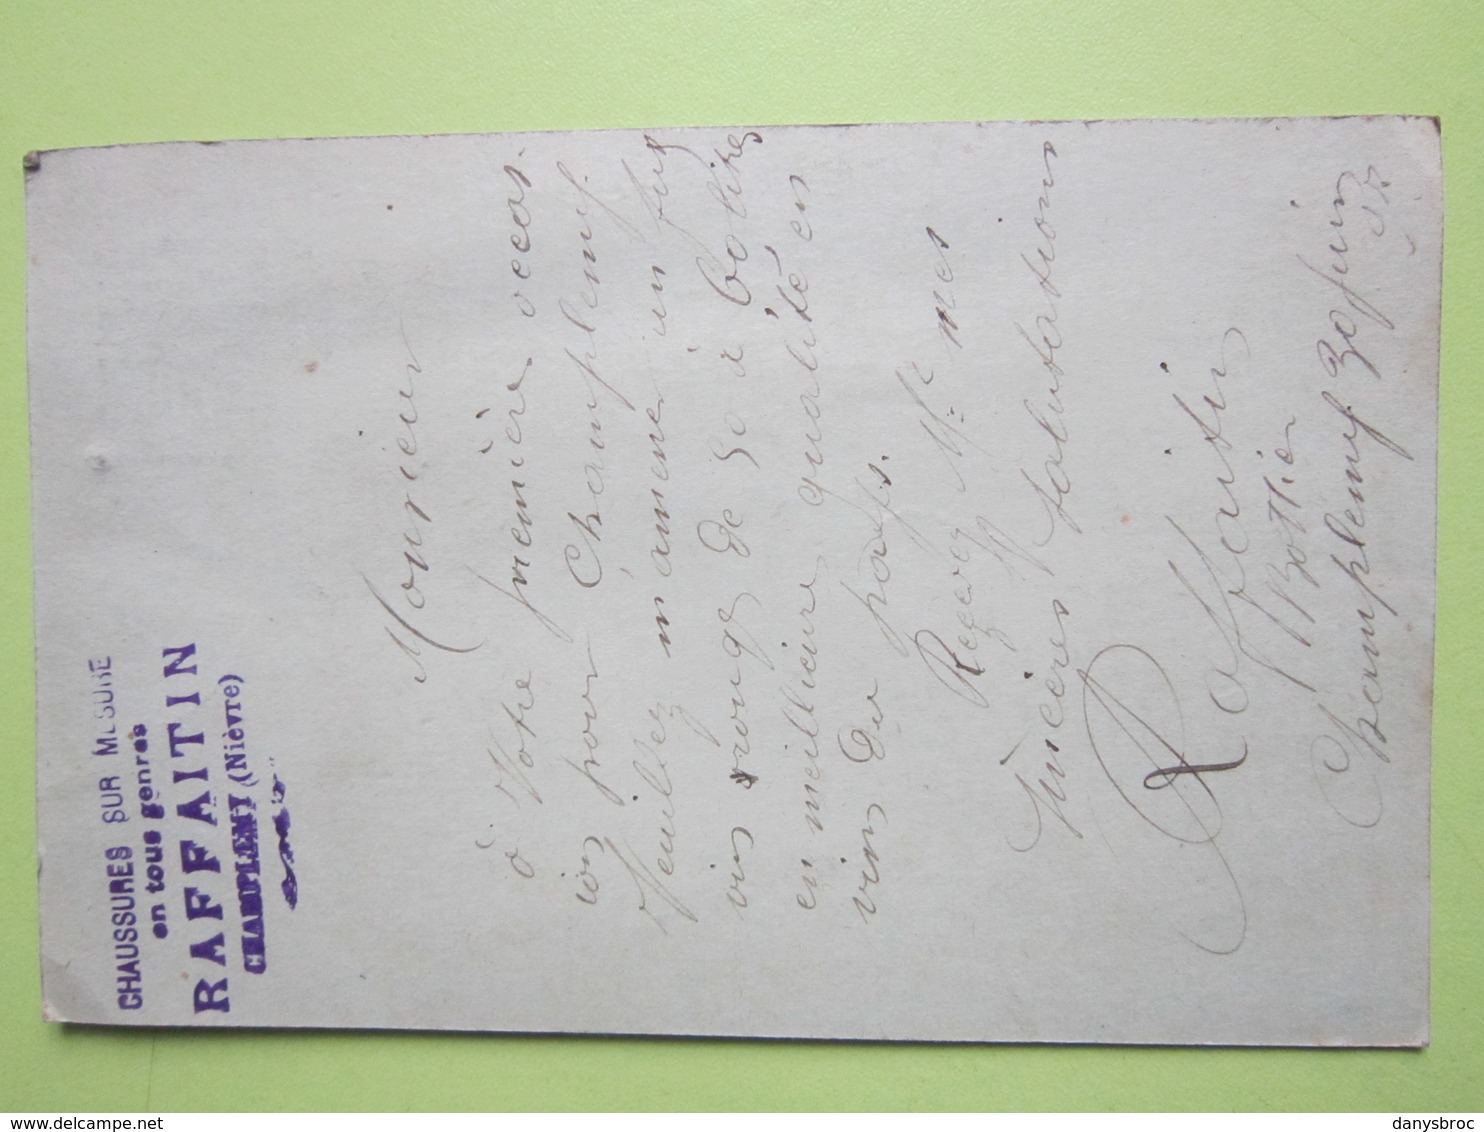 CHAUSSURES SUR MESURE
en tous genres
RAFFAITIN
CHAMPLEMY (Nièvre)
Monsieur
à Votre première occas.
ion pour Champlemy.
Veuillez m'amener un fus
vin rouge de 50 à 60 litres
en meilleure qualité en
vin du pays.
Recevez Mr mes
sincères salutations
Raffaitin
Bottier
Champlemy 30 juin
danysbroc